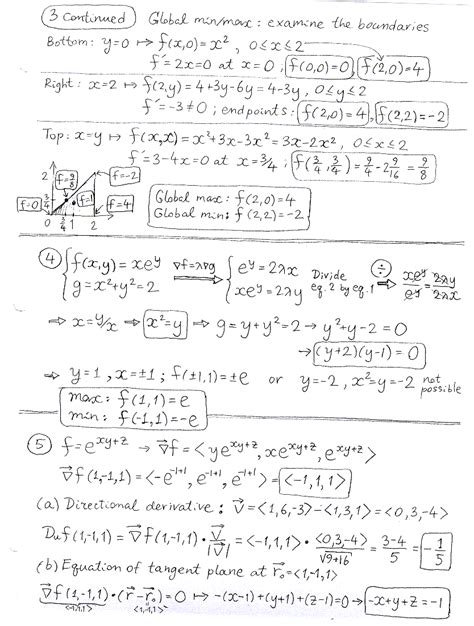 3 continued Global min/max: examine the boundaries
Bottom: y=0 ↦ f(x,0)=x², 0≤x≤2
f'=2x=0 at x=0; f(0,0)=0, f(2,0)=4
Right: x=2 ↦ f(2,y)=4+3y-6y=4-3y, 0≤y≤2
f'=-3≠0; endpoints: f(2,0)=4, f(2,2)=-2
Top: x=y ↦ f(x,x)=x²+3x-3x²=3x-2x², 0≤x≤2
f'=3-4x=0 at x=3/4; f(3/4,3/4)=9/4-2 9/16=9/8
2 f=9/8 f=-2
f=0 3/4 f=4
0 3/4 1 2
Global max: f(2,0)=4
Global min: f(2,2)=-2
④ {f(x,y)=xe^y ∇f=λ∇g {e^y=2λx Divide eq.2 by eq.1 ÷ xe^y/e^y=2λy/2λx
{g=x²+y²=2 {xe^y=2λy
⇒ x=y/x ⇒ x²=y ⇒ g=y+y²=2 → y²+y-2=0
→ (y+2)(y-1)=0
⇒ y=1, x=±1; f(±1,1)=±e or y=-2, x²=y=-2 not possible
max: f(1,1)=e
min: f(-1,1)=-e
⑤ f=e^{xy+z} → ∇f=<ye^{xy+z}, xe^{xy+z}, e^{xy+z}>
∇f(1,-1,1)=<-e^{-1+1}, e^{-1+1}, e^{-1+1}>=<-1,1,1>
(a) Directional derivative: V=<1,6,-3>-<1,3,1>=<0,3,-4>
Duf(1,-1,1)=∇f(1,-1,1)·V/|V|=<-1,1,1>·<0,3,-4>/√9+16=3-4/5=-1/5
(b) Equation of tangent plane at r₀=<1,-1,1>
∇f(1,-1,1)·(r-r₀)=0 → -(x-1)+(y+1)+(z-1)=0 → -x+y+z=-1
<-1,1,1> <1,-1,1>